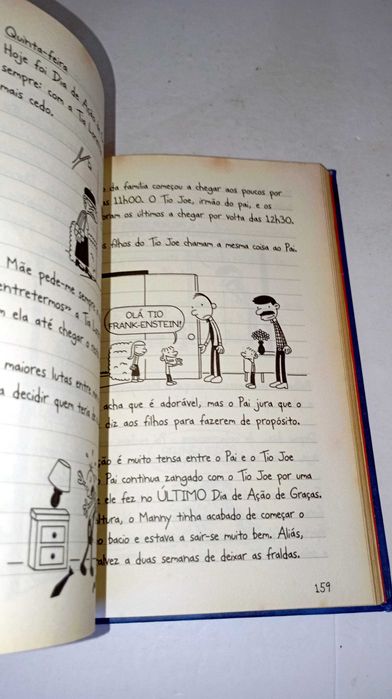 Quinta-feira
Hoje foi Dia de Ação de
sempre: com a Tia
mais cedo.
Mãe pede-me sempre
entretermos» a Tia
m ela até chegar o
maiores lutas entre
a decidir quem teria
da família começou a chegar aos poucos por
as 11h00. O Tio Joe, irmão do pai, e os
oram os últimos a chegar por volta das 12h30.
s filhos do Tio Joe chamam a mesma coisa ao Pai.
OLÁ TIO
FRANK-ENSTEIN!
acha que é adorável, mas o Pai jura que o
diz aos filhos para fazerem de propósito.
ção é muito tensa entre o Pai e o Tio Joe
Pai continua zangado com o Tio Joe por uma
ele fez no ÚLTIMO Dia de Ação de Graças.
ltura, o Manny tinha acabado de começar o
o bacio e estava a sair-se muito bem. Aliás,
alvez a duas semanas de deixar as fraldas.
159